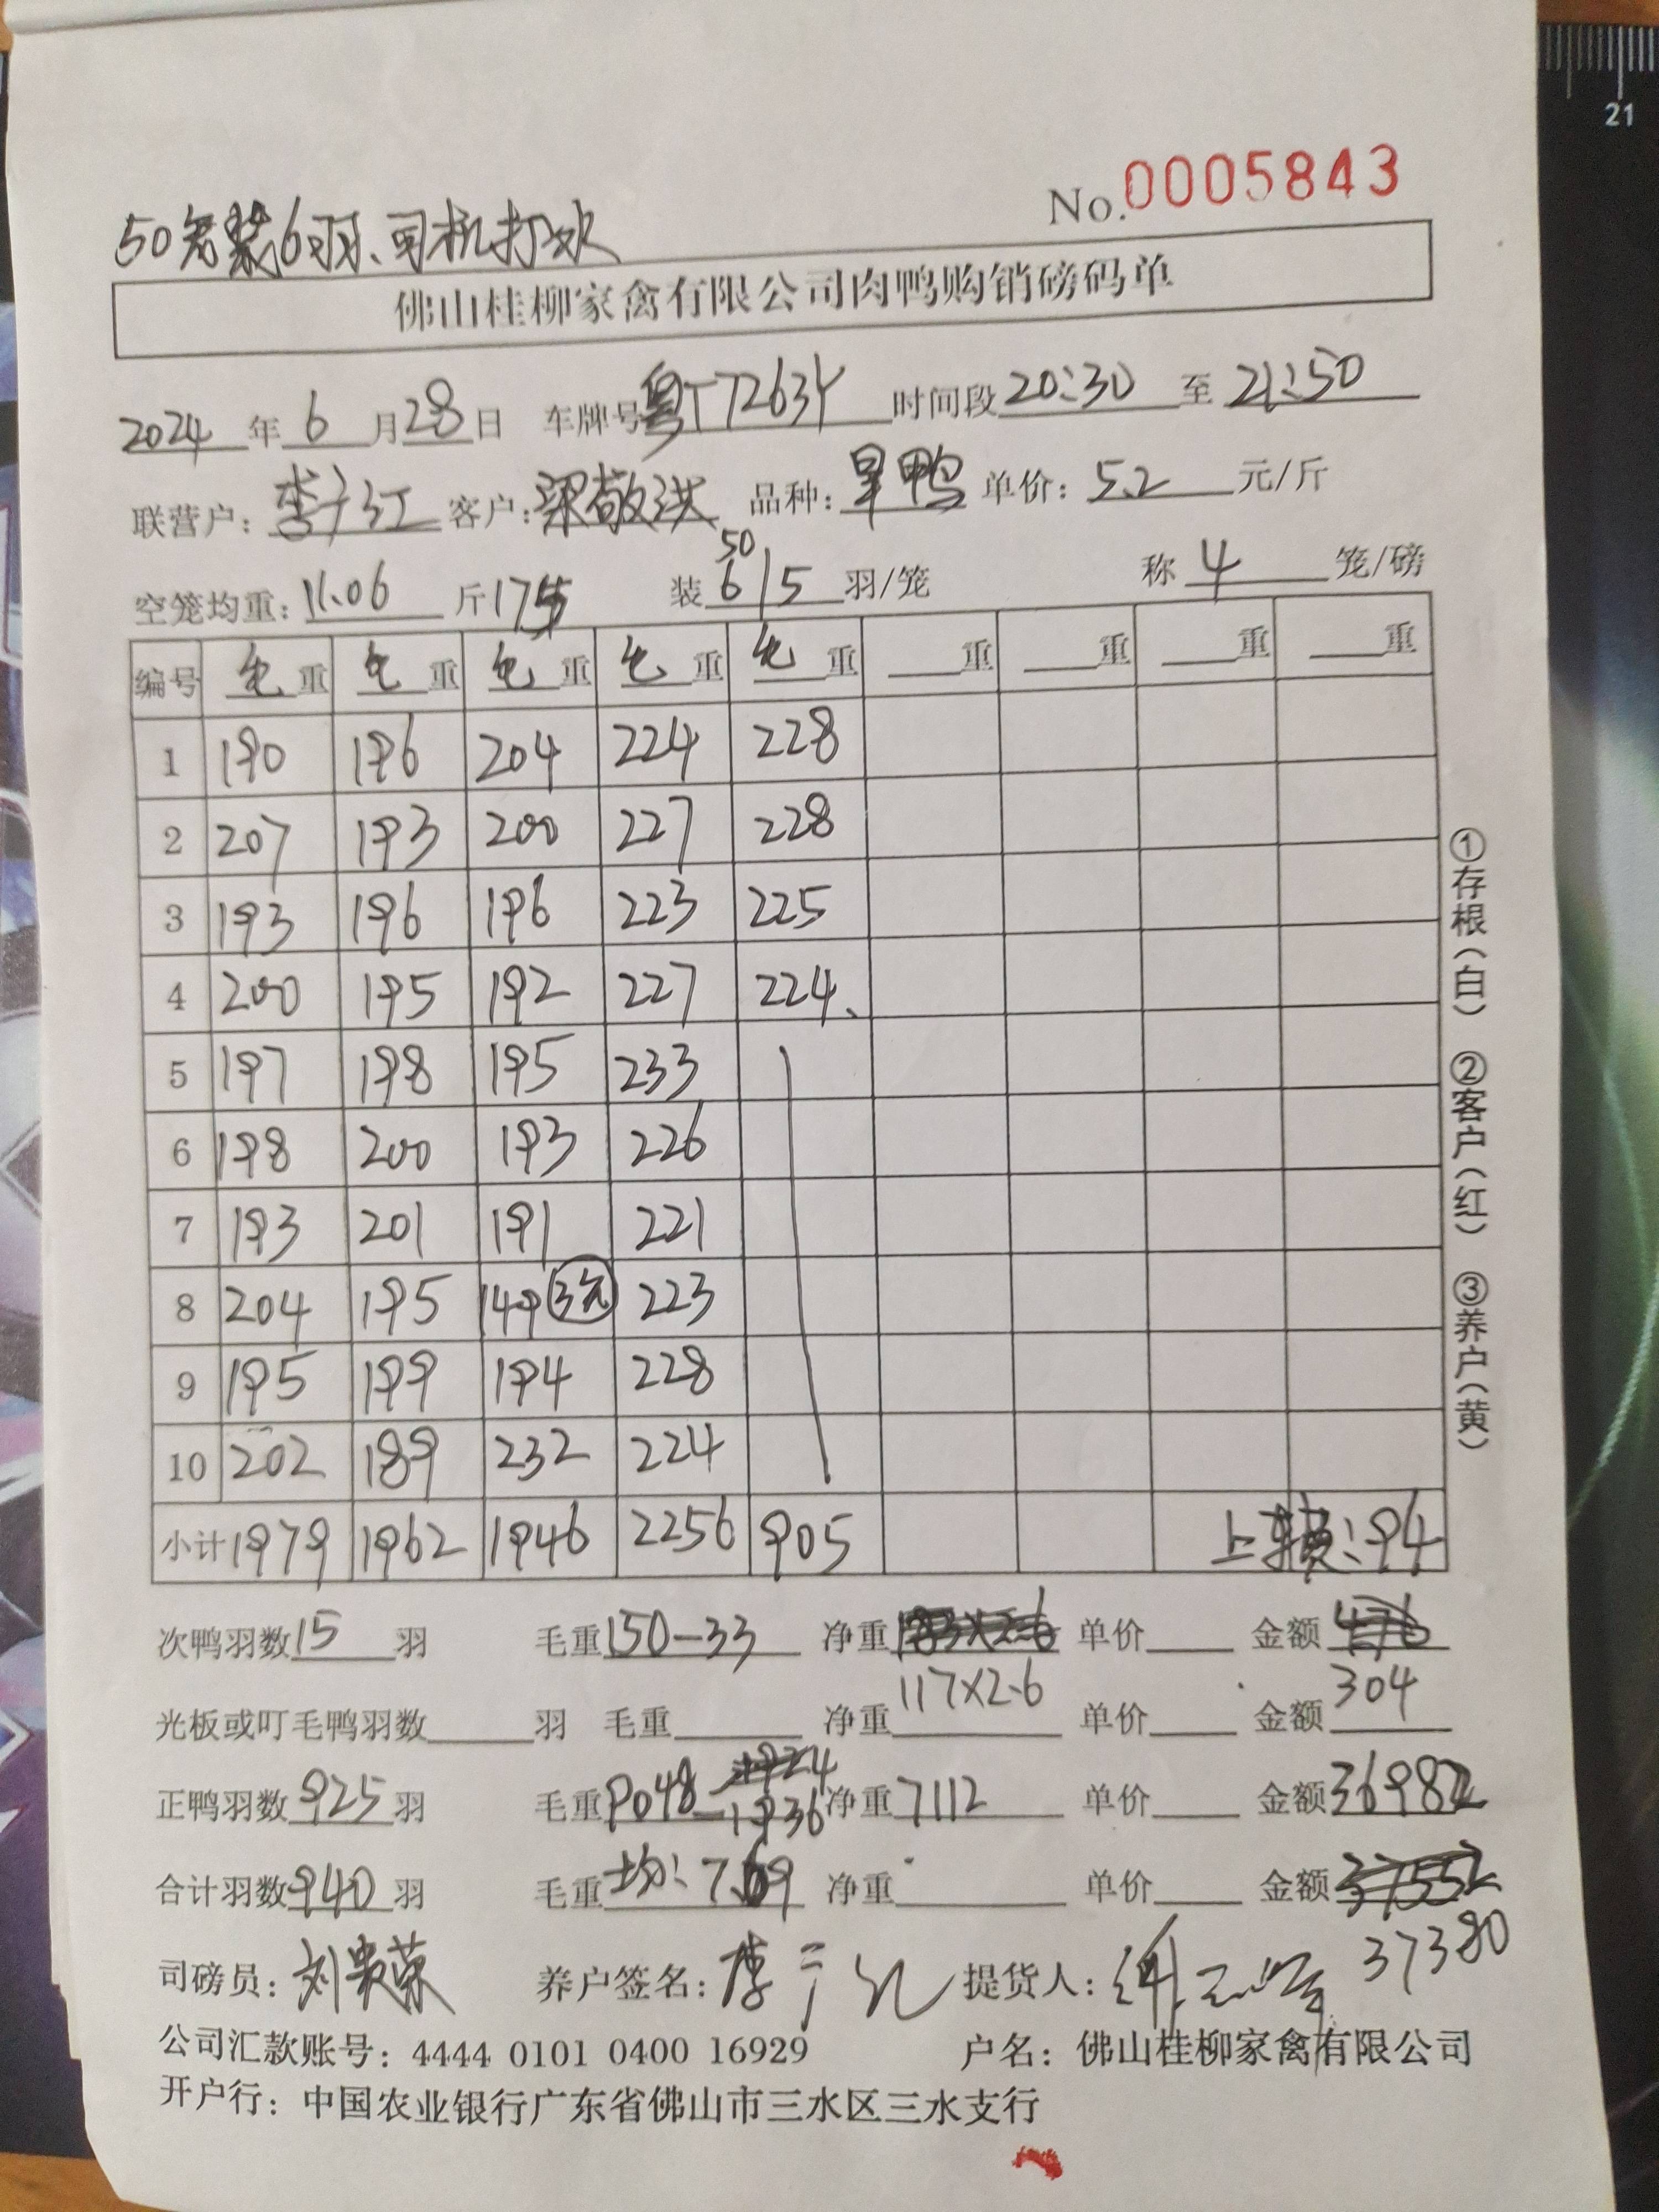 No.0005843
50笼装6羽、司机打水
佛山桂柳家禽有限公司肉鸭购销磅码单
2024年6月28日 车牌号粤T7263Y 时间段20:30至21:50
联营户:李广红 客户:梁敬洪 品种:旱鸭 单价:5.2元/斤
空笼均重:11.06斤175 装50 6/5羽/笼 称4笼/磅
编号 毛重 毛重 毛重 毛重 毛重 重 重 重 重
1 190 196 204 224 228
2 207 193 200 227 228
3 193 196 196 223 225
4 200 195 192 227 224、
5 197 198 195 233
6 198 200 193 226
7 193 201 191 221
8 204 195 149 3元 223
9 195 199 194 228
10 202 189 232 224
小计 1979 1962 1946 2256 905 上车损:94
次鸭羽数15羽 毛重150-33 净重183×2.6 单价 金额476
光板或叮毛鸭羽数 羽 毛重 净重117×2.6 单价 金额304
正鸭羽数925羽 毛重9048-1936 净重7112 单价 金额36982
合计羽数940羽 毛重均:7.69 净重 单价 金额37552
37380
司磅员:刘贵荣 养户签名:李广红 提货人:
公司汇款账号:4444 0101 0400 16929 户名:佛山桂柳家禽有限公司
开户行:中国农业银行广东省佛山市三水区三水支行
①存根(白) ②客户(红) ③养户(黄)
21